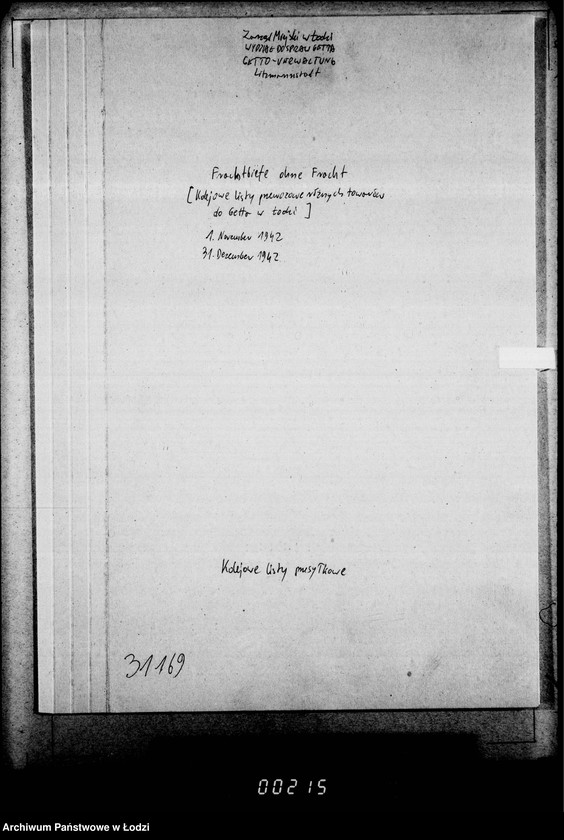 Zarząd Miejski w Łodzi
WYDZIAŁ DO SPRAW GETTA
GETTO-VERWALTUNG
Litzmannstadt
Frachtbriefe ohne Fracht
[Kolejowe listy przewozowe różnych towarów
do Getta w Łodzi]
1. November 1942
31. Dezember 1942
Kolejowe listy przesyłkowe
31169
00215
Archiwum Państwowe w Łodzi